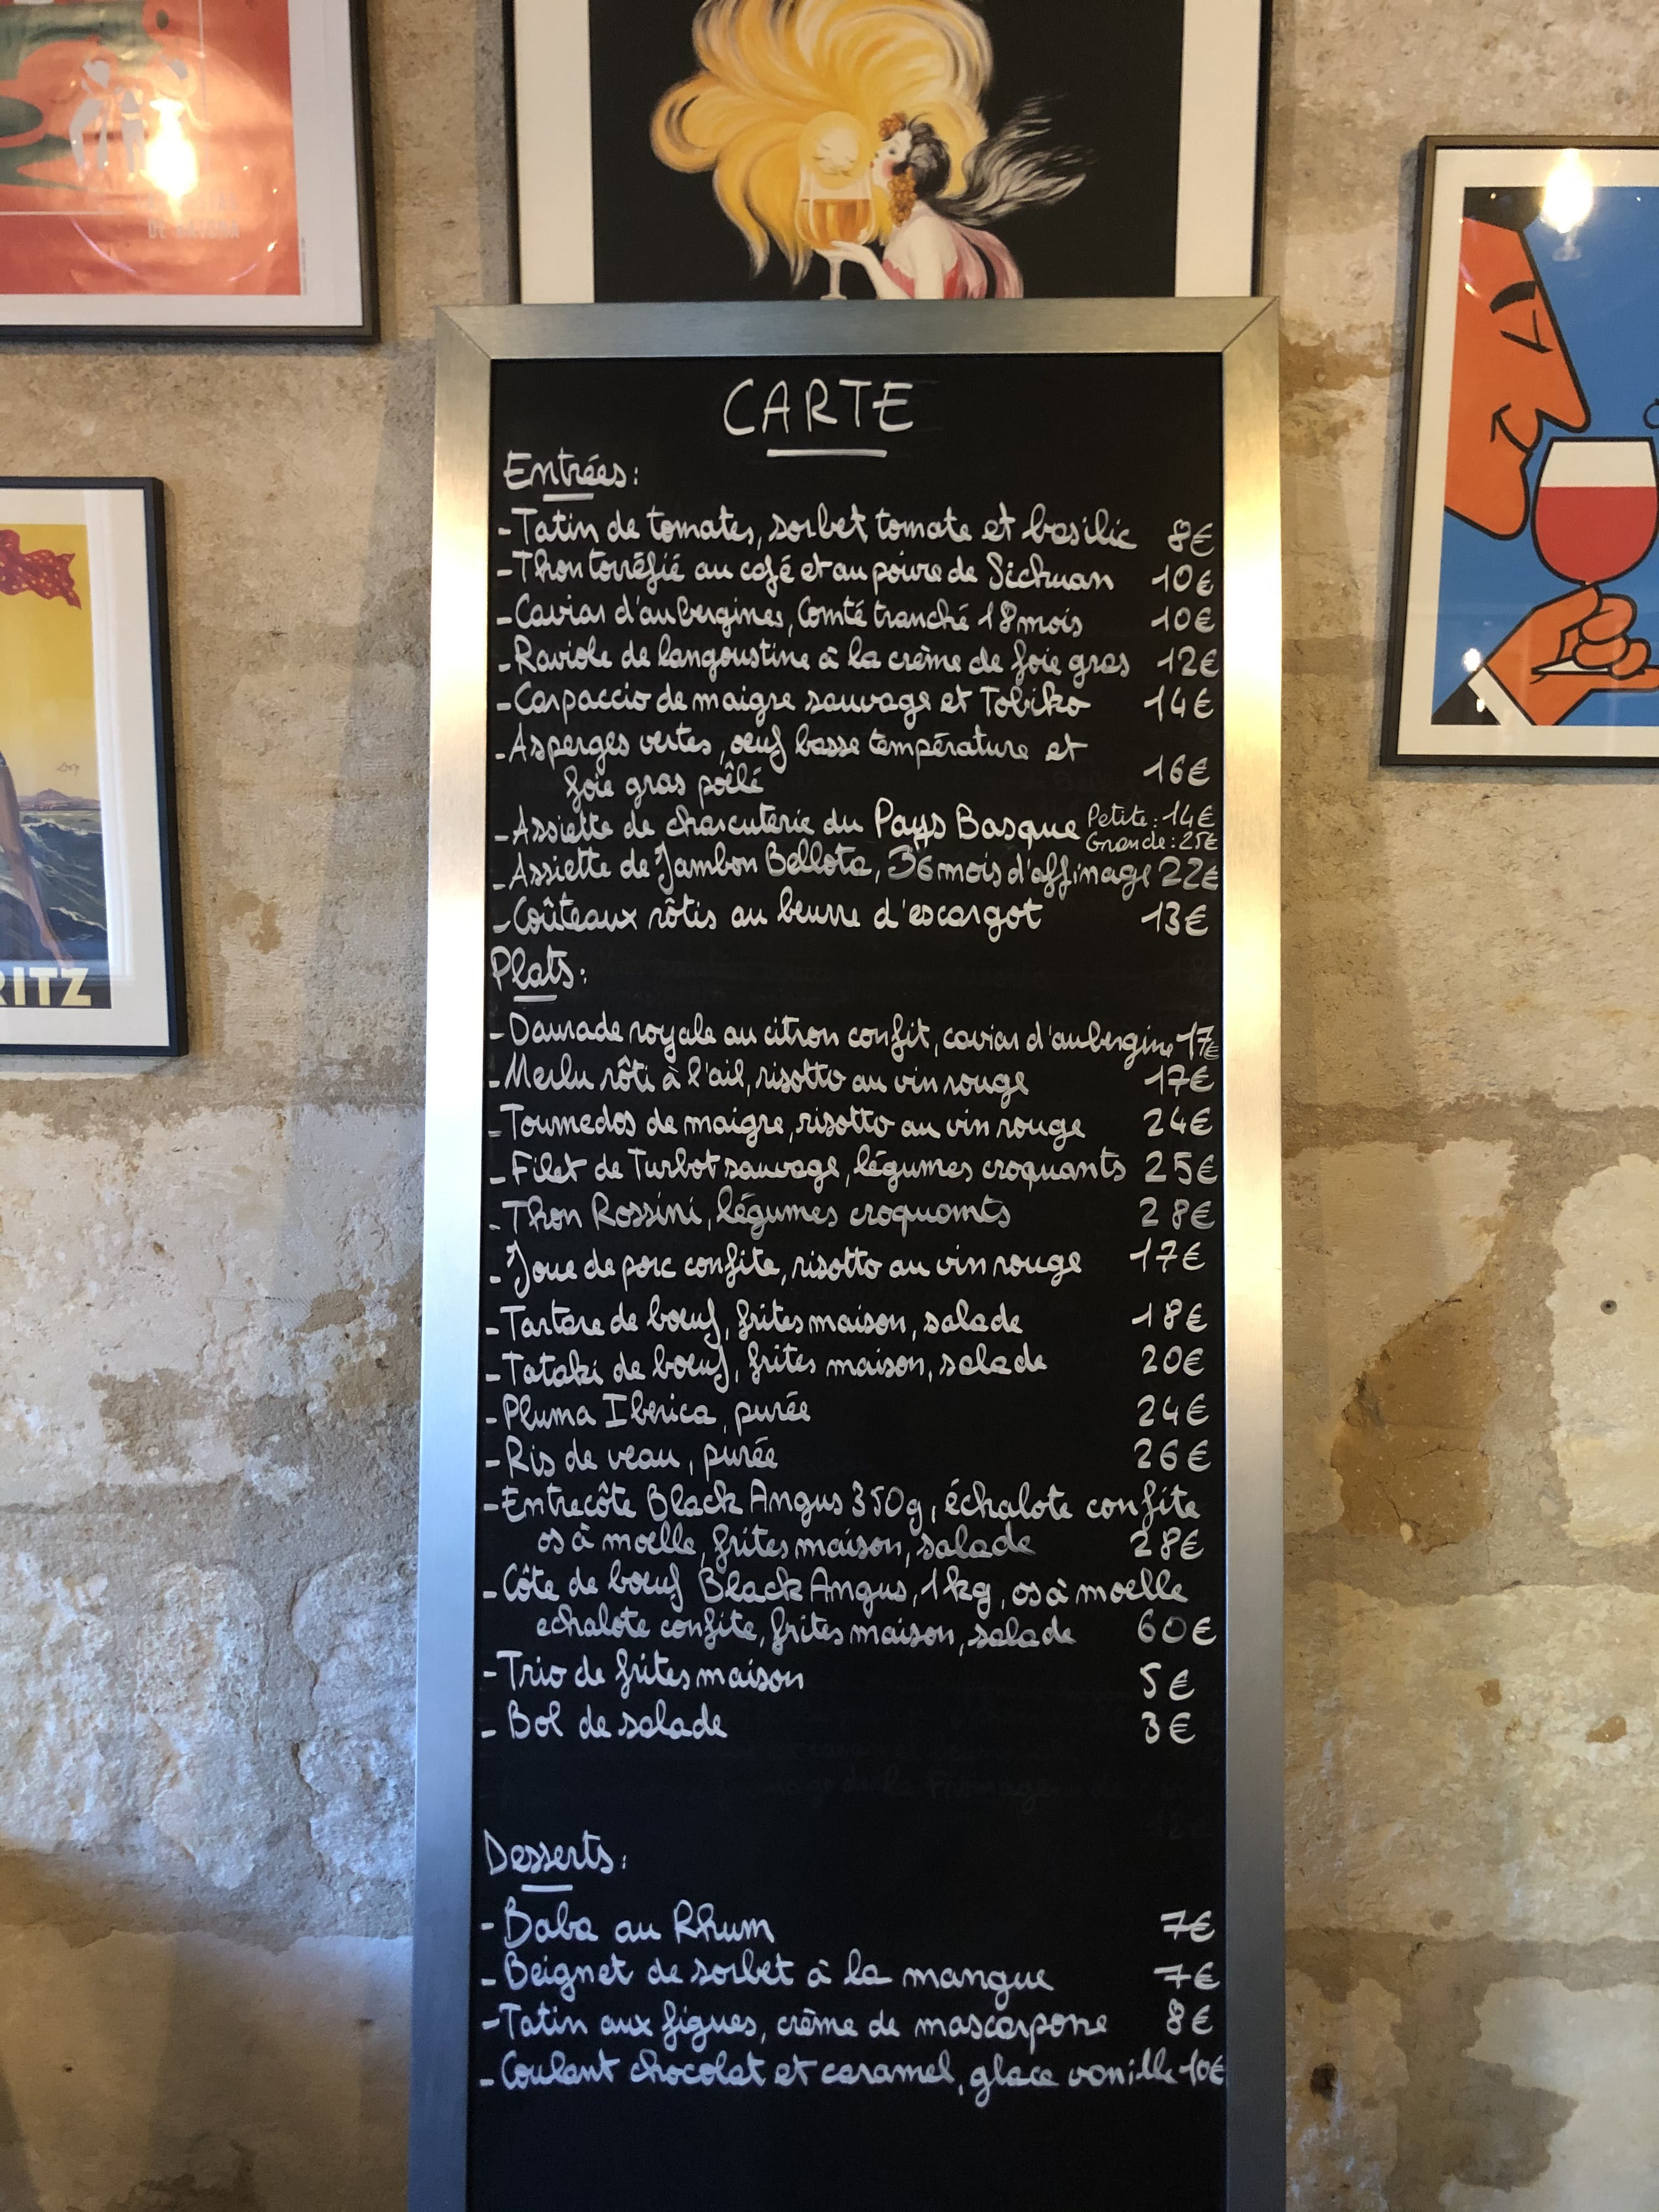 CARTE
Entrées:
- Tatin de tomates, sorbet tomate et basilic 8€
- Thon torréfié au café et au poivre de Sichuan 10€
- Caviar d'aubergines, Comté tranché 18 mois 10€
- Raviole de langoustine à la crème de foie gras 12€
- Carpaccio de maigre sauvage et Tobiko 14€
- Asperges vertes, oeuf basse température et
foie gras pôêlé 16€
- Assiette de charcuterie du Pays Basque Petite: 14€
Grande: 25€
- Assiette de Jambon Bellota, 36 mois d'affinage 22€
- Coûteaux rôtis au beurre d'escargot 13€
Plats:
- Daurade royale au citron confit, caviar d'aubergine 17€
- Merlu rôti à l'ail, risotto au vin rouge 17€
- Tournedos de maigre, risotto au vin rouge 24€
- Filet de Turbot sauvage, légumes croquants 25€
- Thon Rossini, légumes croquants 28€
- Joue de porc confite, risotto au vin rouge 17€
- Tartare de bœuf, frites maison, salade 18€
- Tataki de bœuf, frites maison, salade 20€
- Pluma Iberica, purée 24€
- Ris de veau, purée 26€
- Entrecôte Black Angus 350g, échalote confite
os à moelle, frites maison, salade 28€
- Côte de bœuf Black Angus, 1kg, os à moelle
echalote confite, frites maison, salade 60€
- Trio de frites maison 5€
- Bol de salade 3€
Desserts:
- Baba au Rhum 7€
- Beignet de sorbet à la mangue 7€
- Tatin aux figues, crème de mascarpone 8€
- Coulant chocolat et caramel, glace vanille 10€
RITZ